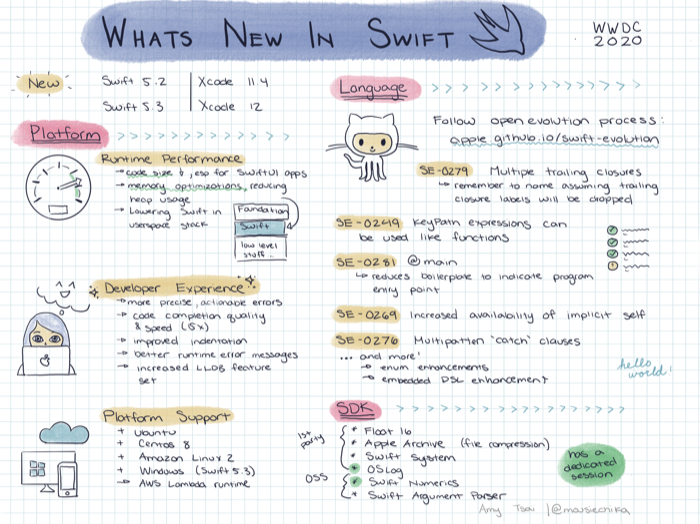 WHATS NEW IN SWIFT
WWDC
2020
New
Swift 5.2 | Xcode 11.4
Swift 5.3 | Xcode 12
Platform
Runtime Performance
code size ↓, esp for SwiftUI apps
memory optimizations, reducing
heap usage
Lowering Swift in
userspace stack
Foundation
Swift
low level
stuff..
Developer Experience
more precise, actionable errors
code completion quality
& speed (15x)
improved indentation
better runtime error messages
increased LLDB feature
set
Platform Support
+ Ubuntu
+ Centos 8
+ Amazon Linux 2
+ Windows (Swift 5.3)
AWS Lambda runtime
Language
Follow open evolution process:
apple.github.io/swift-evolution
SE-0279 Multiple trailing closures
remember to name assuming trailing
closure labels will be dropped
SE-0249 KeyPath expressions can
be used like functions
SE-0281 @main
reduces boilerplate to indicate program
entry point
SE-0269 Increased availability of implicit self
SE-0276 Multipattern "catch" clauses
... and more!
enum enhancements
embedded DSL enhancement
hello
world!
SDK
1st
party
* Float 16
* Apple Archive (file compression)
* Swift System
* OSLog
OSS
* Swift Numerics
* Swift Argument Parser
has a
dedicated
session
Amy Tsai | @mausiechika